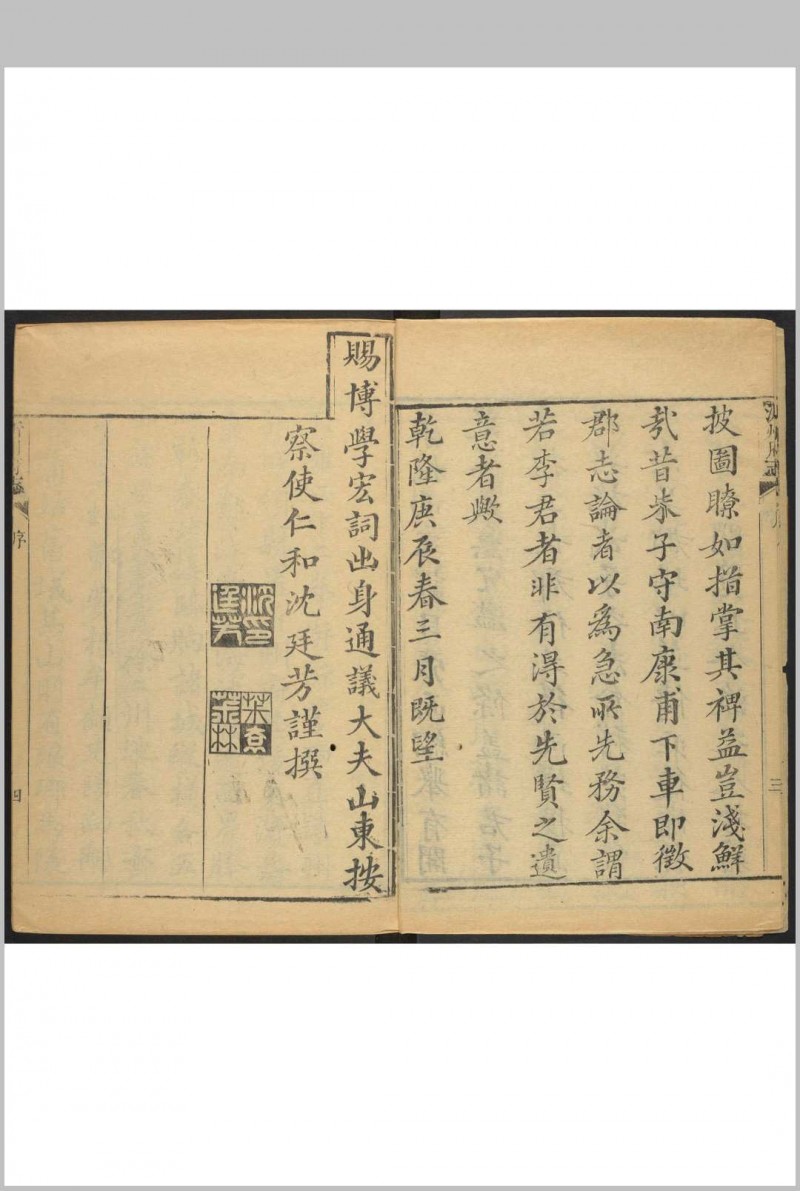 披圖瞭如指掌其裨益豈淺鮮
哉昔朱子守南康甫下車即徵
郡志論者以為急所先務余謂
若李君者非有得於先賢之遺
意者歟
乾隆庚辰春三月既望
賜博學宏詞出身通議大夫山東按
察使仁和沈廷芳謹撰
沈印廷芳
序
四
三